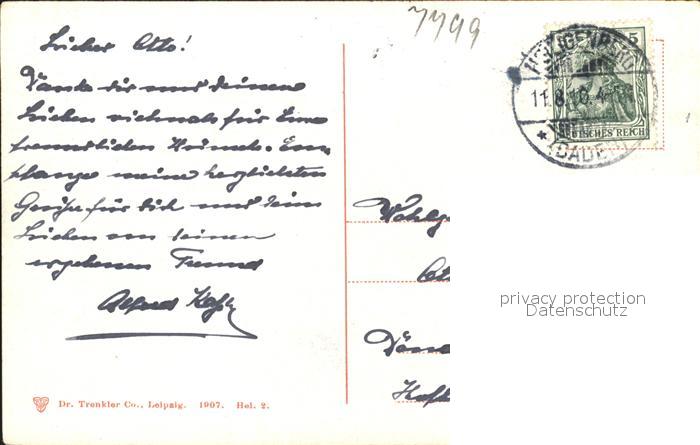 7499
Lieber Otto!
Danke dir und deinen
Lieben vielmals für Eure
freundlichen Wünsche. Em-
pfange meine herzlichsten
Grüße für dich und deine
Lieben von deinem
ergebenen Freund
Alfred
Dr. Trenkler Co., Leipzig. 1907. Hel. 2.
HEILIGENBERG
11.8.10.4
(BADEN)
5
DEUTSCHES REICH
Wohlg
privacy protection
Datenschutz